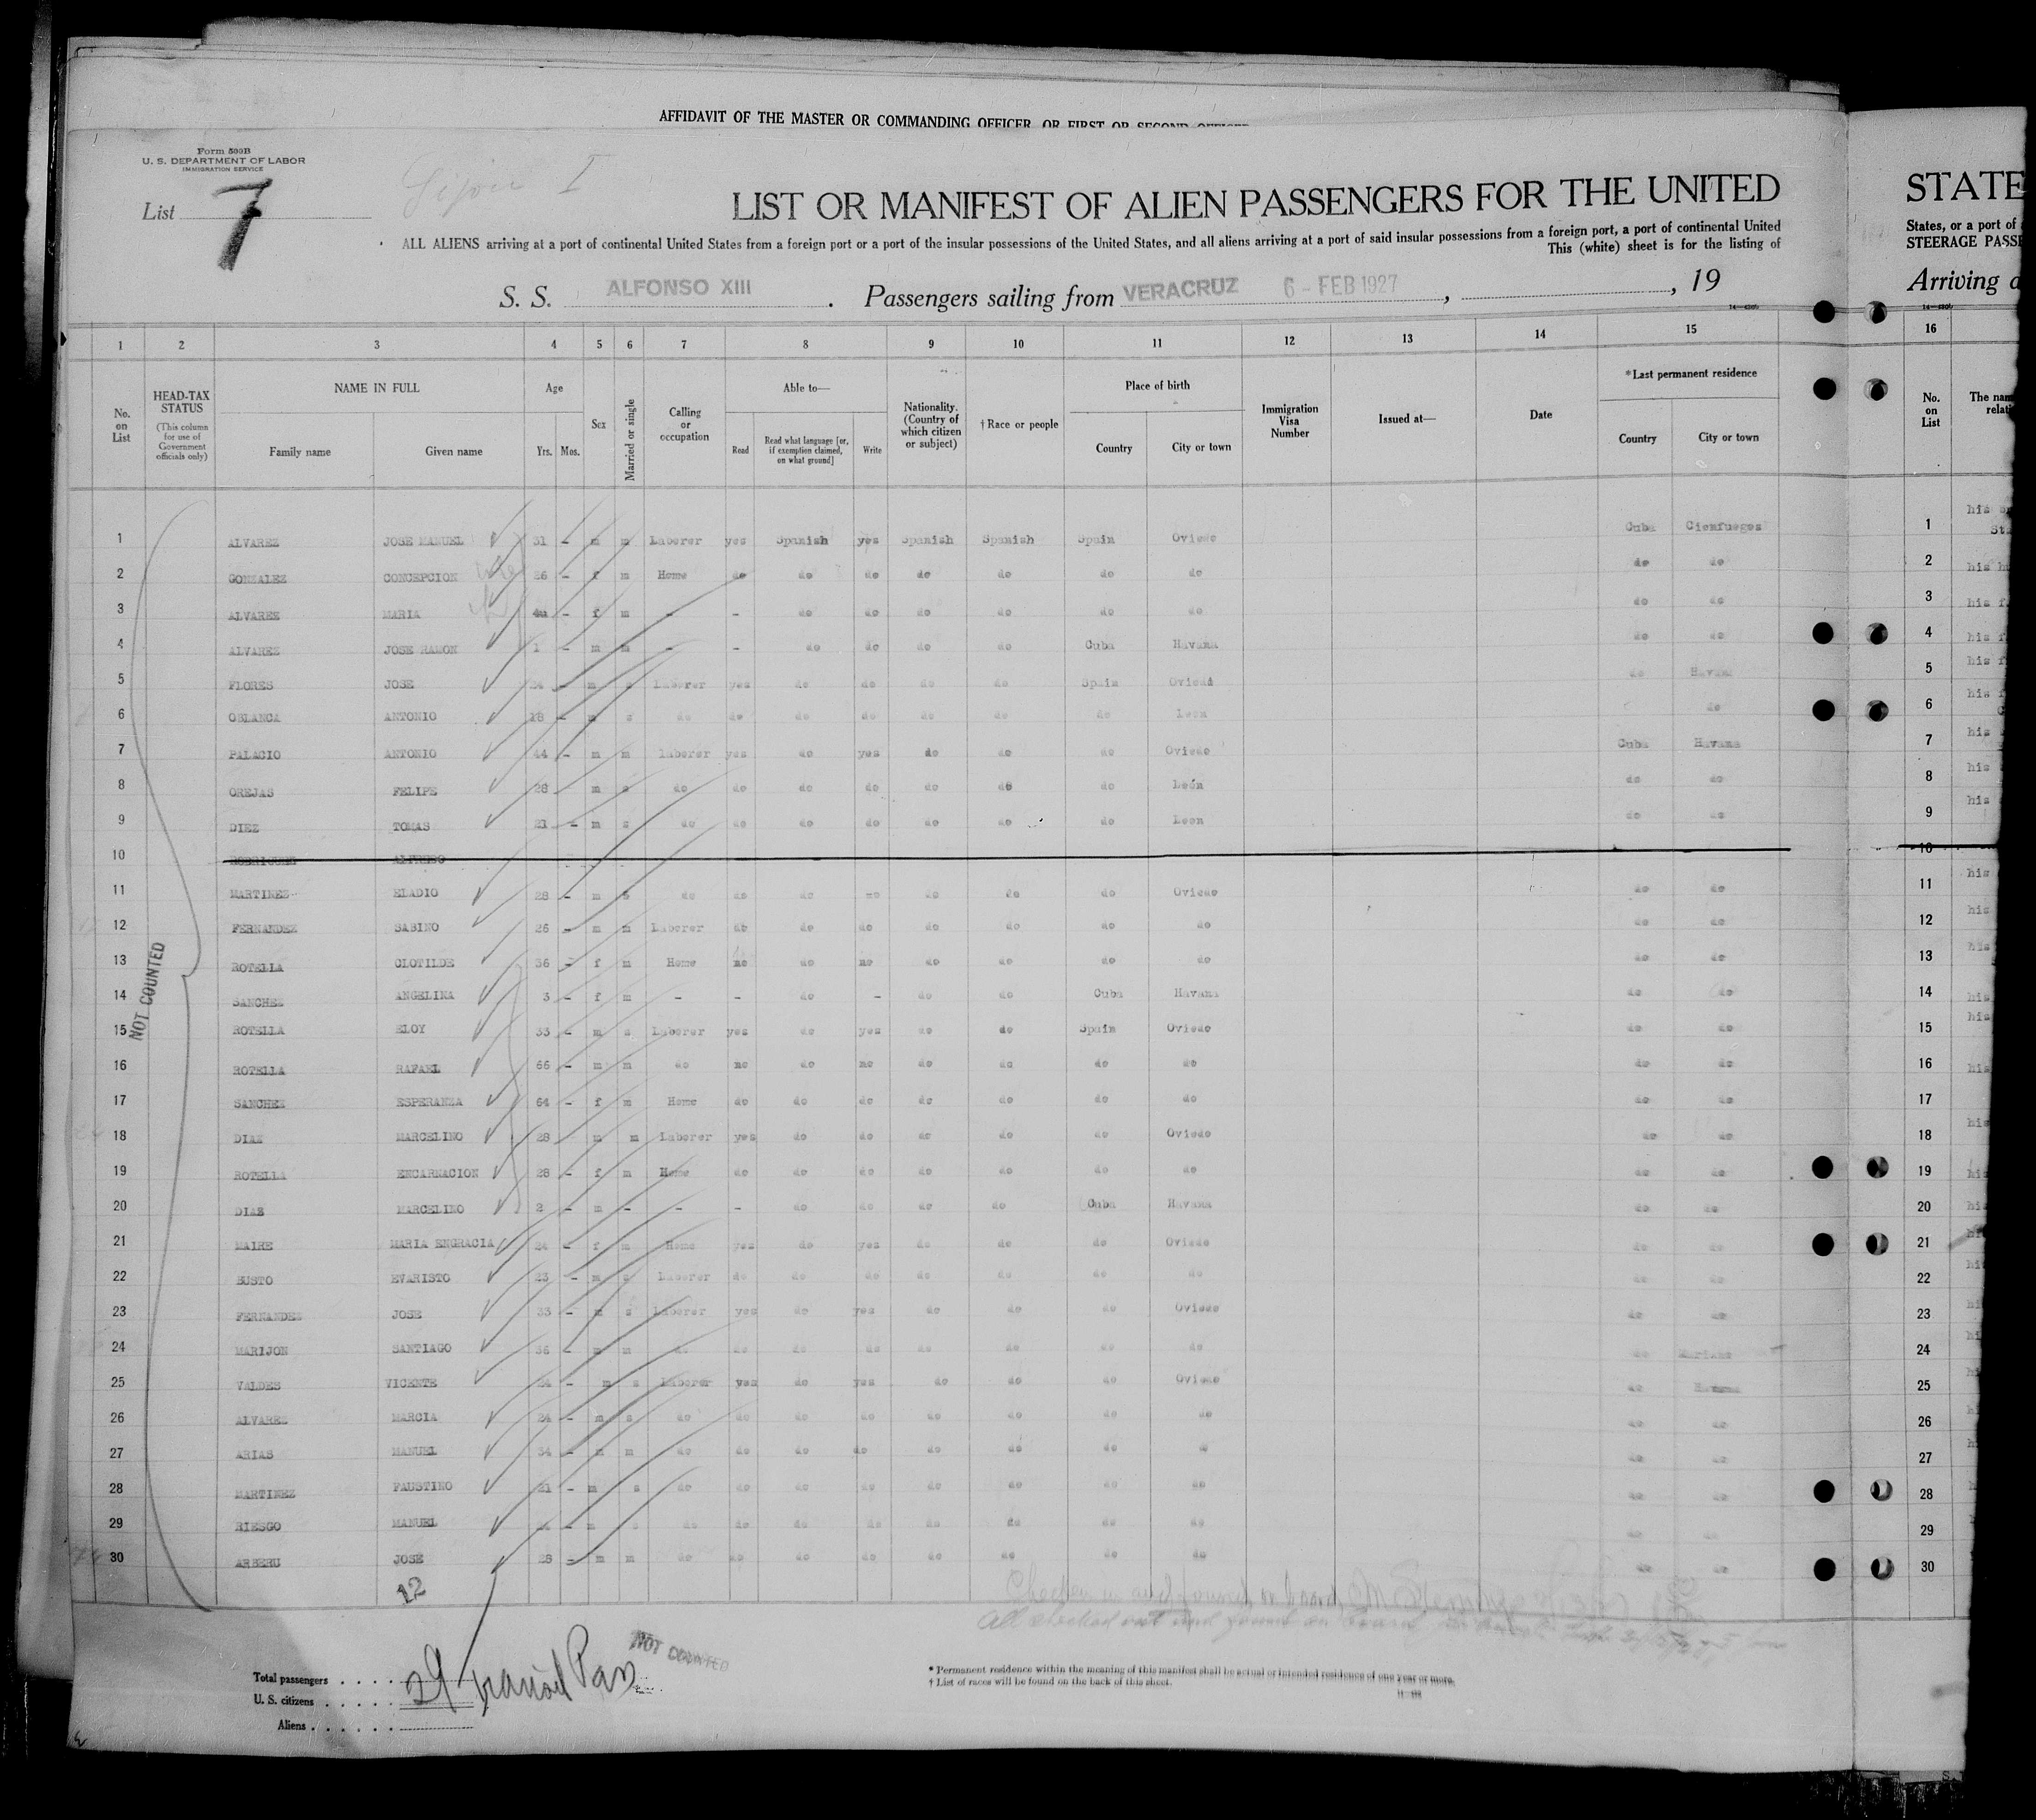 AFFIDAVIT OF THE MASTER OR COMMANDING OFFICER, OR FIRST OR SECOND OFFICER
Form 500B
U. S. DEPARTMENT OF LABOR
IMMIGRATION SERVICE
List 7
Gijon I
LIST OR MANIFEST OF ALIEN PASSENGERS FOR THE UNITED
ALL ALIENS arriving at a port of continental United States from a foreign port or a port of the insular possessions of the United States, and all aliens arriving at a port of said insular possessions from a foreign port, a port of continental United
This (white) sheet is for the listing of
S. S. ALFONSO XIII . Passengers sailing from VERACRUZ 6 - FEB 1927 , , 19
STATE
States, or a port of
STEERAGE PASS
Arriving a
1 2 3 4 5 6 7 8 9 10 11 12 13 14 15 16
No. on List
HEAD-TAX STATUS (This column for use of Government officials only)
NAME IN FULL Family name Given name
Age Yrs. Mos.
Sex
Married or single
Calling or occupation
Able to— Read Read what language [or, if exemption claimed, on what ground] Write
Nationality. (Country of which citizen or subject)
† Race or people
Place of birth Country City or town
Immigration Visa Number
Issued at—
Date
*Last permanent residence Country City or town
No. on List
1 ALVAREZ JOSE MANUEL 31 - m m Laborer yes Spanish yes Spanish Spanish Spain Oviedo Cuba Cienfuegos 1 his
2 GONZALEZ CONCEPCION 26 - f m Home do do do do do do do do do 2 his
3 ALVAREZ MARIA - f m - - do do do do do do do do 3 his
4 ALVAREZ JOSE RAMON 1 - m m - - do do do do Cuba Havana do do 4 his
5 FLORES JOSE - m s Laborer yes do do do do Spain Oviedo do Havana 5 his
6 OBLANCA ANTONIO 18 - m s do do do do do do do Leon do 6 his
7 PALACIO ANTONIO 44 - m m laborer yes do yes do do do Oviedo Cuba Havana 7 his
8 OREJAS FELIPE 28 m s do do do do do do do León do do 8 his
9 DIEZ TOMAS 21 - m s do do do do do do do Leon do do 9 his
10 RODRIGUEZ ALFREDO 10
11 MARTINEZ ELADIO 28 - m s do do do no do do do Oviedo do do 11 his
12 FERNANDEZ SABINO 26 - m m Laborer do do do do do do do do do 12 his
13 ROTELLA CLOTILDE 36 - f m Home no do no do do do do do do 13 his
14 SANCHEZ ANGELINA 3 - f m - - do - do do Cuba Havana do do 14 his
15 ROTELLA ELOY 33 - m s Laborer yes do yes do do Spain Oviedo do do 15 his
16 ROTELLA RAFAEL 66 - m m do no do no do do do do do do 16 his
17 SANCHEZ ESPERANZA 64 - f m Home do do do do do do do do do 17
18 DIAZ MARCELINO 28 m m Laborer yes do do do do do Oviedo do do 18 his
19 ROTELLA ENCARNACION 28 - f m Home do do do do do do do do do 19 his
20 DIAZ MARCELINO 2 - m - - - do do do do Cuba Havana do do 20 his
21 MAIRE MARIA ENGRACIA 24 - f m Home yes do yes do do do Oviedo do do 21
22 BUSTO EVARISTO 23 - m s Laborer do do do do do do do do do 22
23 FERNANDEZ JOSE 33 - m s Laborer yes do yes do do do Oviedo do do 23
24 MARIJON SANTIAGO 36 - m m do do do do do do do do do 24
25 VALDES VICENTE 24 - m s Laborer yes do yes do do do Oviedo do Havana 25
26 ALVAREZ MARCIA 24 - m s do do do do do do do do do do 26
27 ARIAS MANUEL 34 - m m do do do do do do do do do 27
28 MARTINEZ FAUSTINO 21 - m s do do do do do do do do do do 28
29 RIESGO MANUEL - m s do do do do do do do do do do 29
30 ARBERU JOSE 28 - m m do do do do do do do do do do 30
NOT COUNTED
12
All checked out and found on board
Total passengers
U. S. citizens
Aliens
29
NOT COUNTED
* Permanent residence within the meaning of this manifest shall be actual or intended residence of one year or more.
† List of races will be found on the back of this sheet.